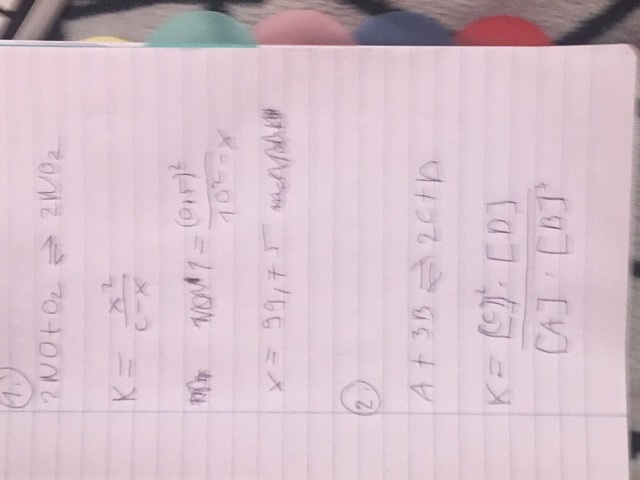 1.)
2NO+O2 ⇌ 2NO2
K = x² / c-x
1 = (0,5)² / 10² - x
x = 99,75
2.
A + 3B ⇌ 2C+D
K = [C]² · [D] / [A] · [B]³